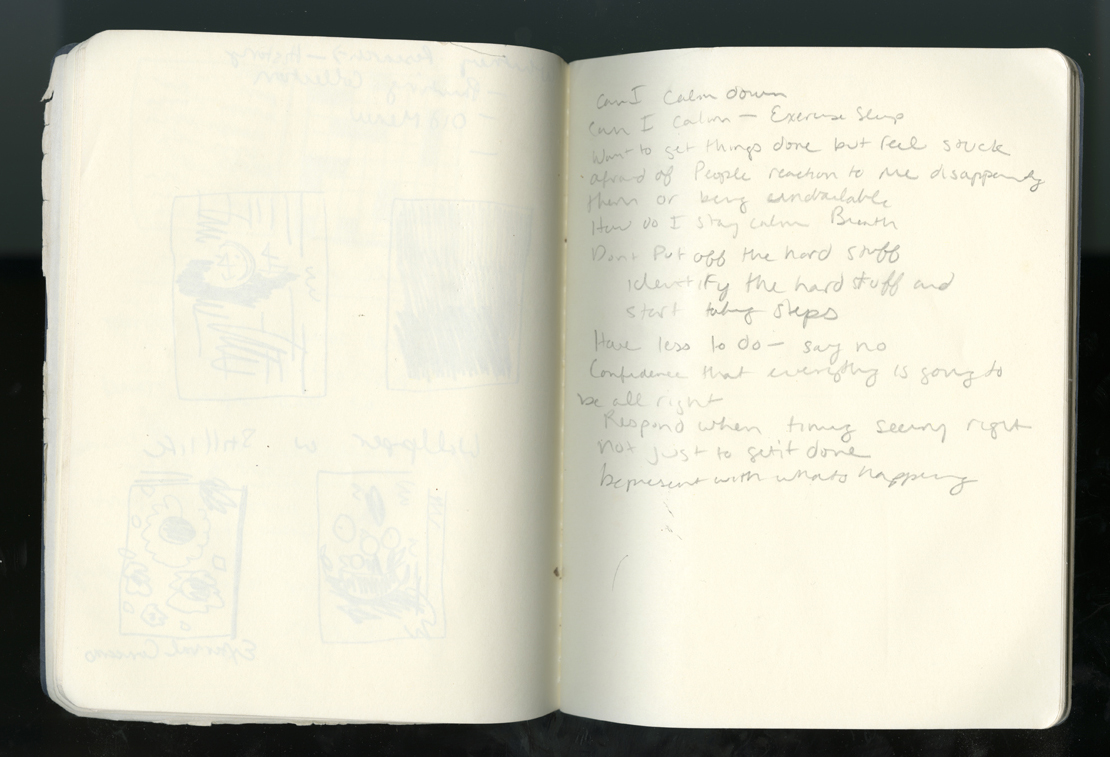 can I calm down
can I calm — Exercise Sleep
Want to get things done but feel stuck
afraid of People reaction to me disappointing
them or being unavailable
How do I stay calm Breath
Dont Put off the hard stuff
identify the hard stuff and
start taking steps
Have less to do — say no
Confidence that everything is going to
be all right
Respond when timing seems right
not just to get it done
be present with whats happening
Wallpaper w Still life